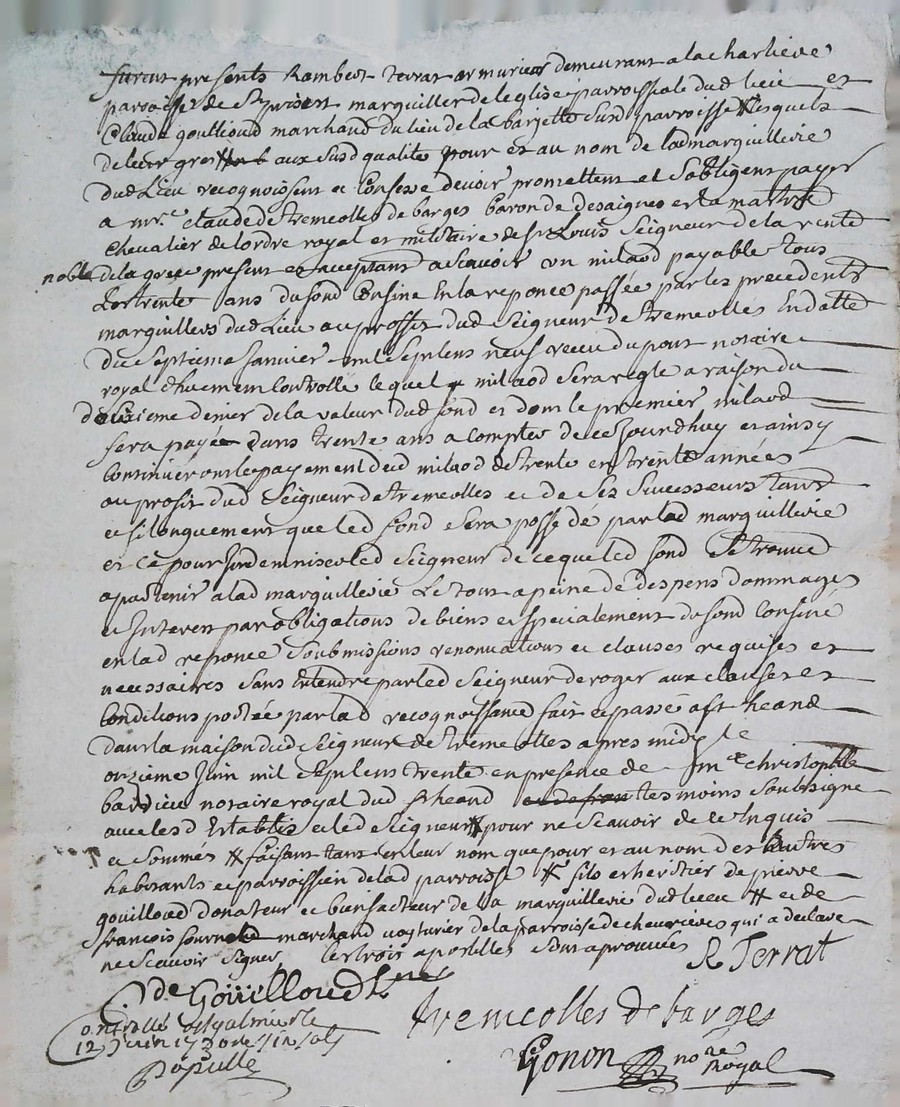 furent presents Rambert terrat armurier demeurant a la charlieve
parroisse de St priest marguiller de leglise parroissiale dud lieu et
Claude gouilloud marchand du lieu de la bargette susd parroisse # lesquels
de leur gre aux susd qualite pour et au nom de lad marguillerie
dud Lieu recognoissent et Confesse devoir promettent et sobligent payer
a mr.e claude de tremeolles de barges baron de desaignes et la mastre
chevalier de lordre royal et militaire de st Louis Seigneur de la rente
noble de la greze present et acceptant a scavoir un milaod payable tous
Les trente ans du fond Confine En la reponce passée par les precedents
marguillers dud Lieu au proffit dud Seigneur de tremeolles En datte
du septieme Janvier mil sept cens neuf receu dupont notaire
royal duement Controllé lequel milaod sera regle a raison du
deuxieme denier de la valeur dud fond et dont le premier milaod
sera payée dans trente ans a compter de ce Jourdhuy et ainsy
Continueront le payement dud milaod de trente en trente années
au profit dud Seigneur de tremeolles et de ses successeurs tant
et si longuement que led fond sera possedé par lad marguillerie
et ce pour Indemniser led Seigneur de ce que led fond se trouve
apartenir a lad marguillerie Le tout a peine de despens dommages
et Interets par obligations de biens et specialement du fond Confiné
en lad reponce Soubmissions renonciations et clauses requises et
necessaires sans Entendre par led Seigneur deroger aux clauses et
Conditions portée par lad recognoissance fait et passé a st heand
dans la maison dud Seigneur de tremeolles apres midy le
onzieme Juin mil sept cens trente en presence de me christophle
bardieu notaire royal dud st heand tesmoins soubsigne
avec lesd Establis et led Seigneur # pour ne scavoir de ce Enquis
et Sommés # faisant tant en leur nom que pour et au nom des autres
habitants et parroissien de lad parroisse # fils et heritier de pierre
gouilloud donateur et bienfacteur de la marguillerie dud lieu # et de
francois fournel marchand voyturier de la parroisse de chevrieres qui a declare
ne scavoir signer les trois apostilles sont aprouvées
R Terrat
de Gouilloud
tremeolles de barges
Controllé a st galmier le
12 Juin 1730 re
Papulle
Gonon nore
Royal